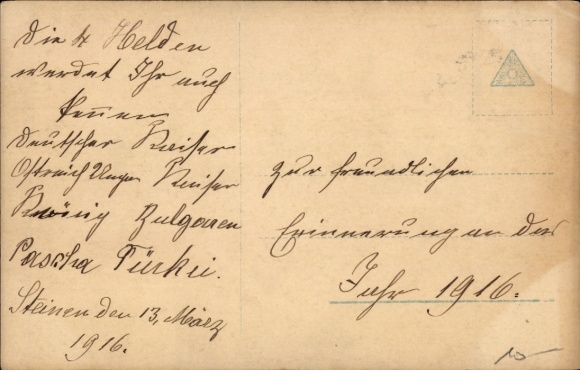 Die 4 Helden
werdet Ihr auch
kennen
deutscher Kaiser
Ostreich Ungar Kaiser
König Bulgaren
Pascha Türkei.
Steinen den 13. März
1916.
zur freundlichen
Erinnerung an das
Jahr 1916.